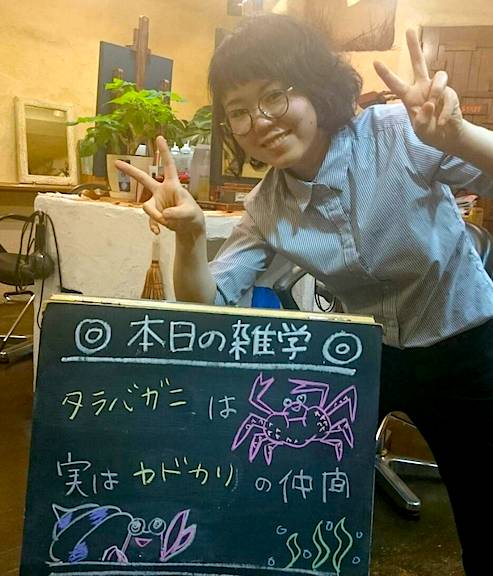 ◎ 本日の雑学 ◎
タラバガニ は
実は ヤドカリ の仲間